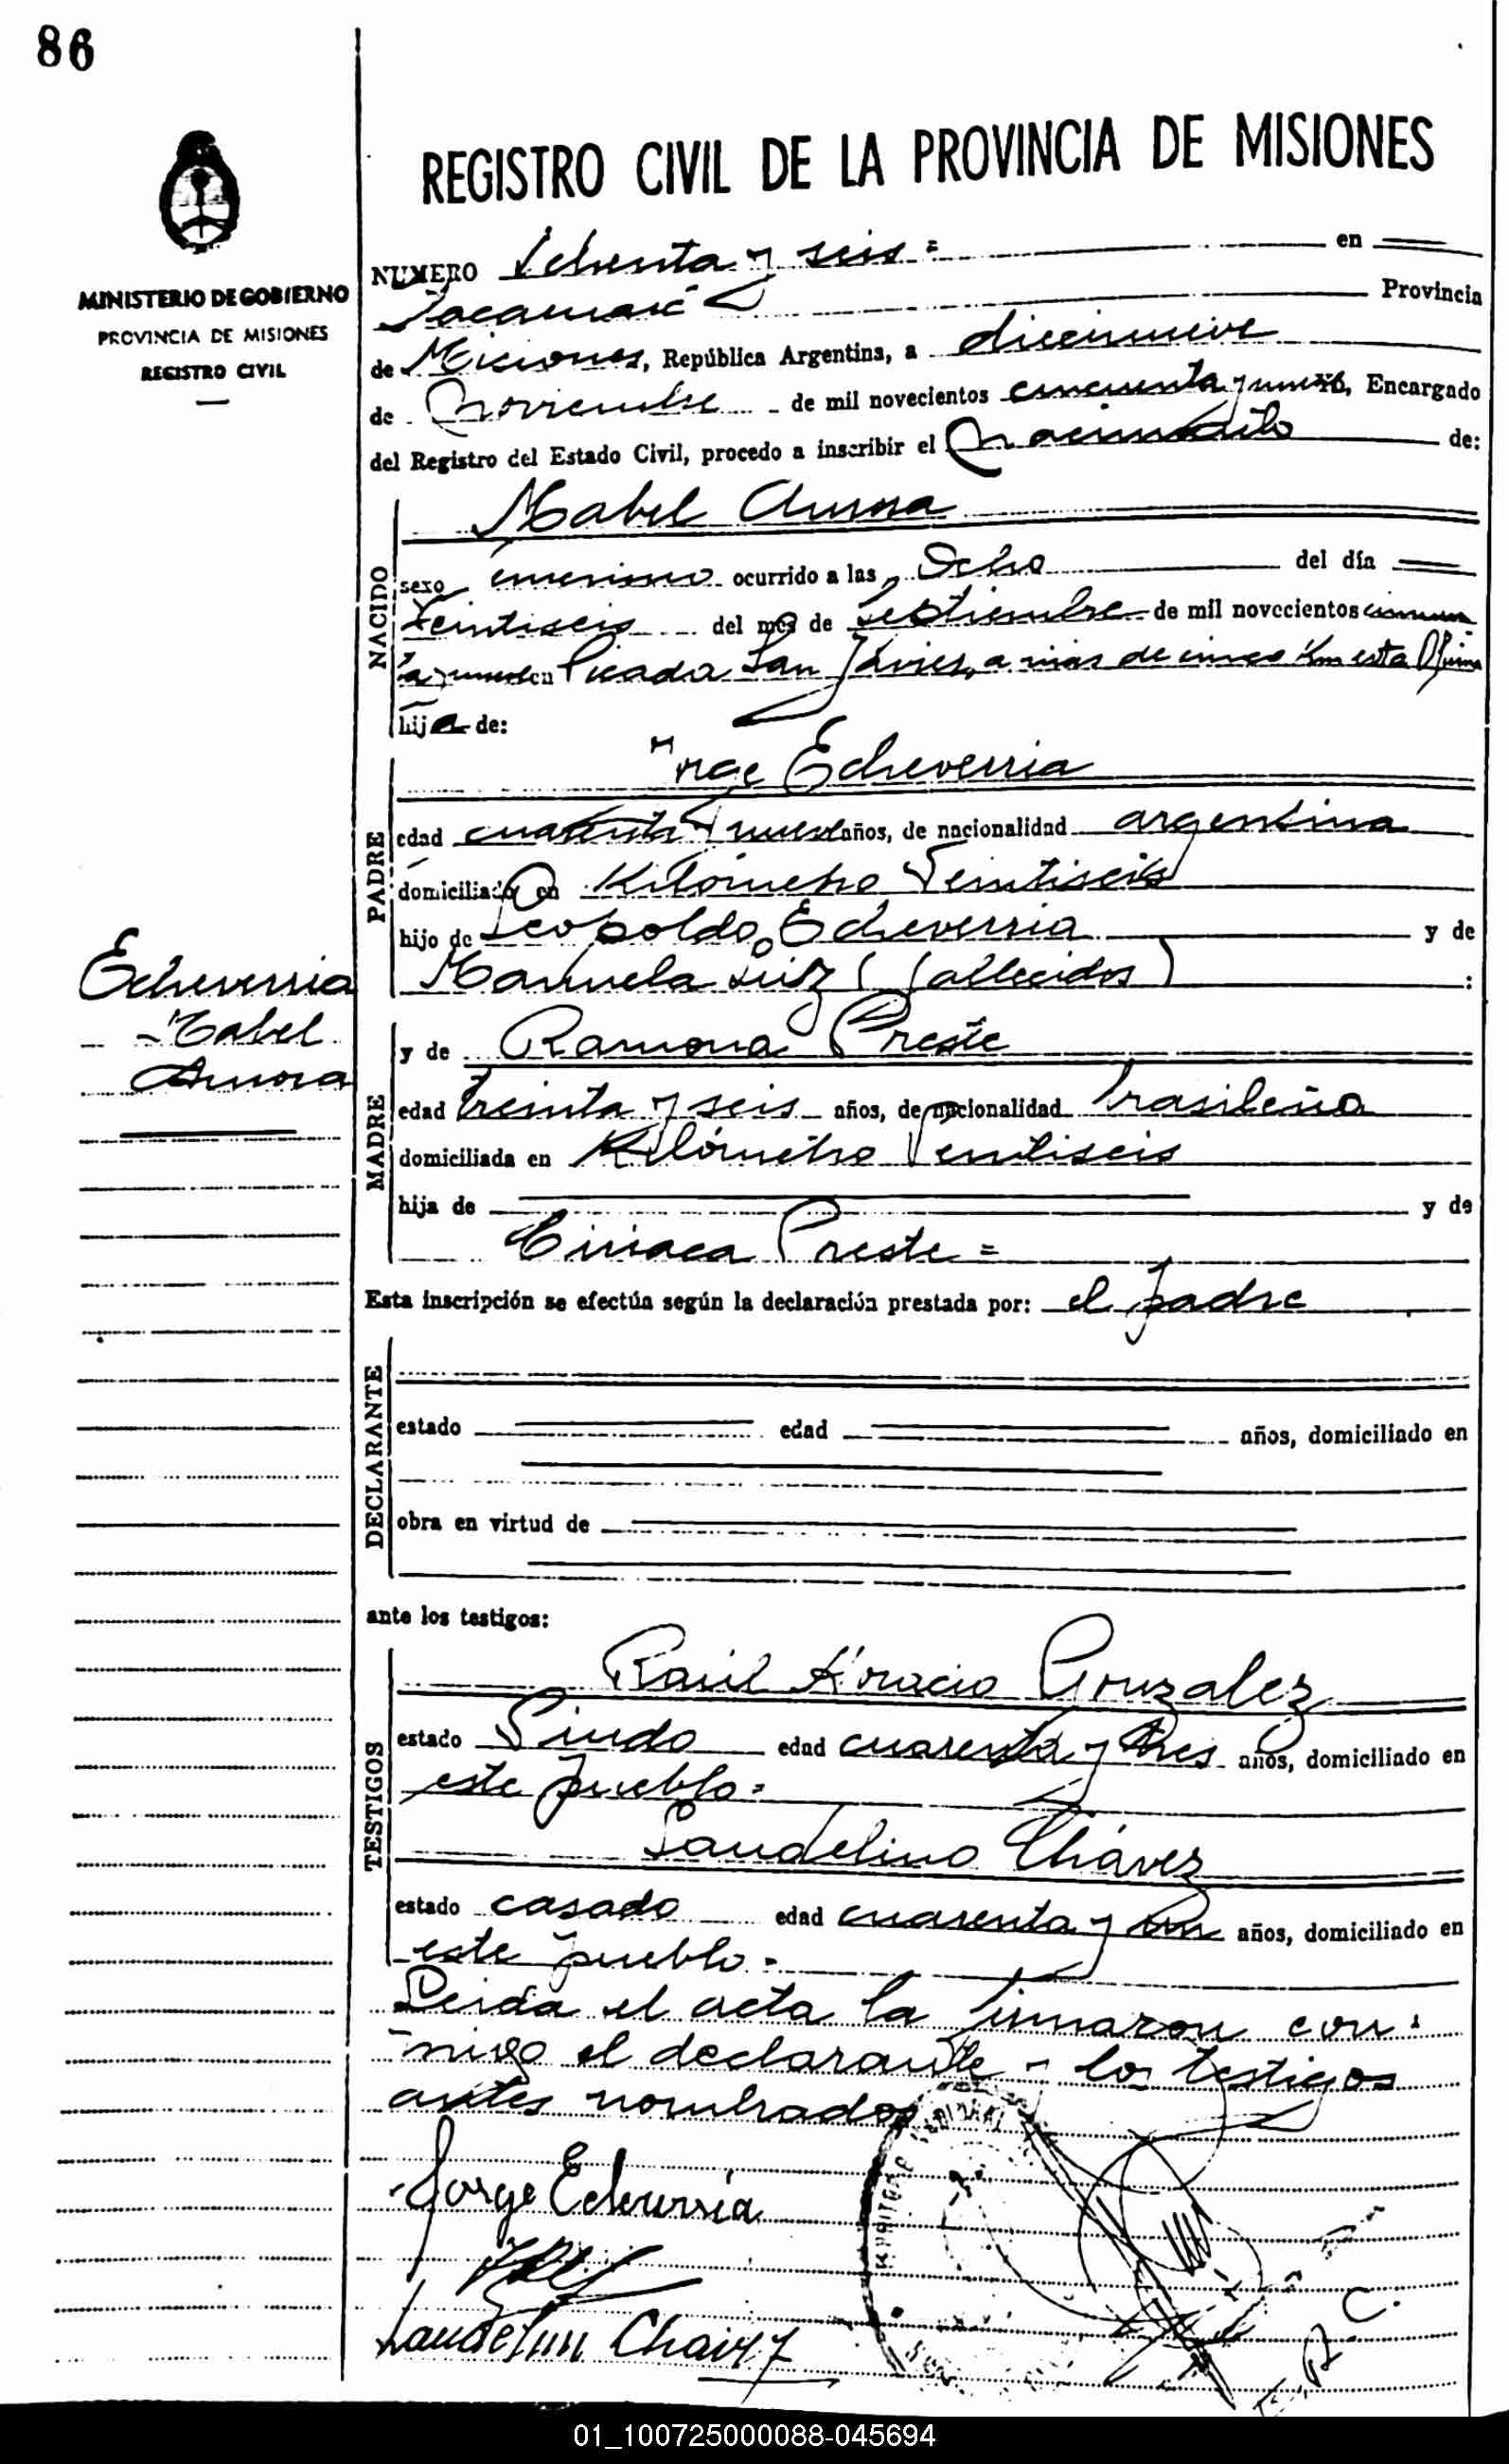 86
REGISTRO CIVIL DE LA PROVINCIA DE MISIONES
MINISTERIO DE GOBIERNO
PROVINCIA DE MISIONES
REGISTRO CIVIL
NUMERO Ochenta y seis = en
Provincia
de Misiones, República Argentina, a diecinueve
de Noviembre de mil novecientos cincuenta y nueve, Encargado
del Registro del Estado Civil, procedo a inscribir el Nacimiento de:
NACIDO
Mabel
sexo femenino ocurrido a las Ocho del día
Veintiseis del mes de Septiembre de mil novecientos cincuen
ta y nueve en Picada San Javier, a mas de cinco Km esta Oficina
hija de:
PADRE
Jorge Echeverria
edad cuarenta y nueve años, de nacionalidad argentina
domiciliado en Kilómetro Veintiseis
hijo de Leopoldo Echeverria y de
Manuela (fallecidos) :
Echeverria
Mabel
MADRE
y de Ramona Preste
edad treinta y seis años, de nacionalidad brasileña
domiciliada en Kilómetro Veintiseis
hija de y de
Ciriaca Preste =
Esta inscripción se efectúa según la declaración prestada por: el padre
DECLARANTE
estado edad años, domiciliado en
obra en virtud de
ante los testigos:
TESTIGOS
Raúl Horacio Gonzalez
estado Viudo edad cuarenta y tres años, domiciliado en
este pueblo =
Laudelino Chávez
estado casado edad cuarenta y un años, domiciliado en
este pueblo -
Leida el acta la firmaron con-
migo el declarante y los testigos
antes nombrados
Jorge Echeverría
Laudelino Chavez
01_100725000088-045694